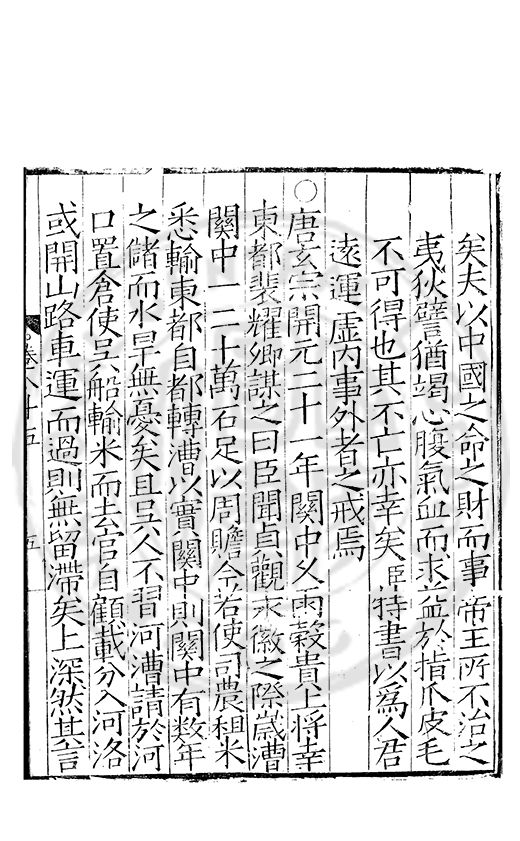 矣夫以中國之命之財而事帝王所不治之
夷狄譬猶竭心股氣血而求益於指爪皮毛
不可得也其不亡亦幸矣臣特書以為人君
遠運虛內事外者之戒焉
○唐玄宗開元二十一年關中久雨穀貴上將幸
東都裴耀卿謀之曰臣聞貞觀永徽之際歲漕
關中一二十萬石足以周贍今若使司農租米
悉輸東都自都轉漕以實關中則關中有数年
之儲而水旱無憂矣且吳人不習河漕請於河
口置倉使吳船輸米而去官自顧載分入河洛
或開山路車運而過則無留滯矣上深然其言
卷八十五
五